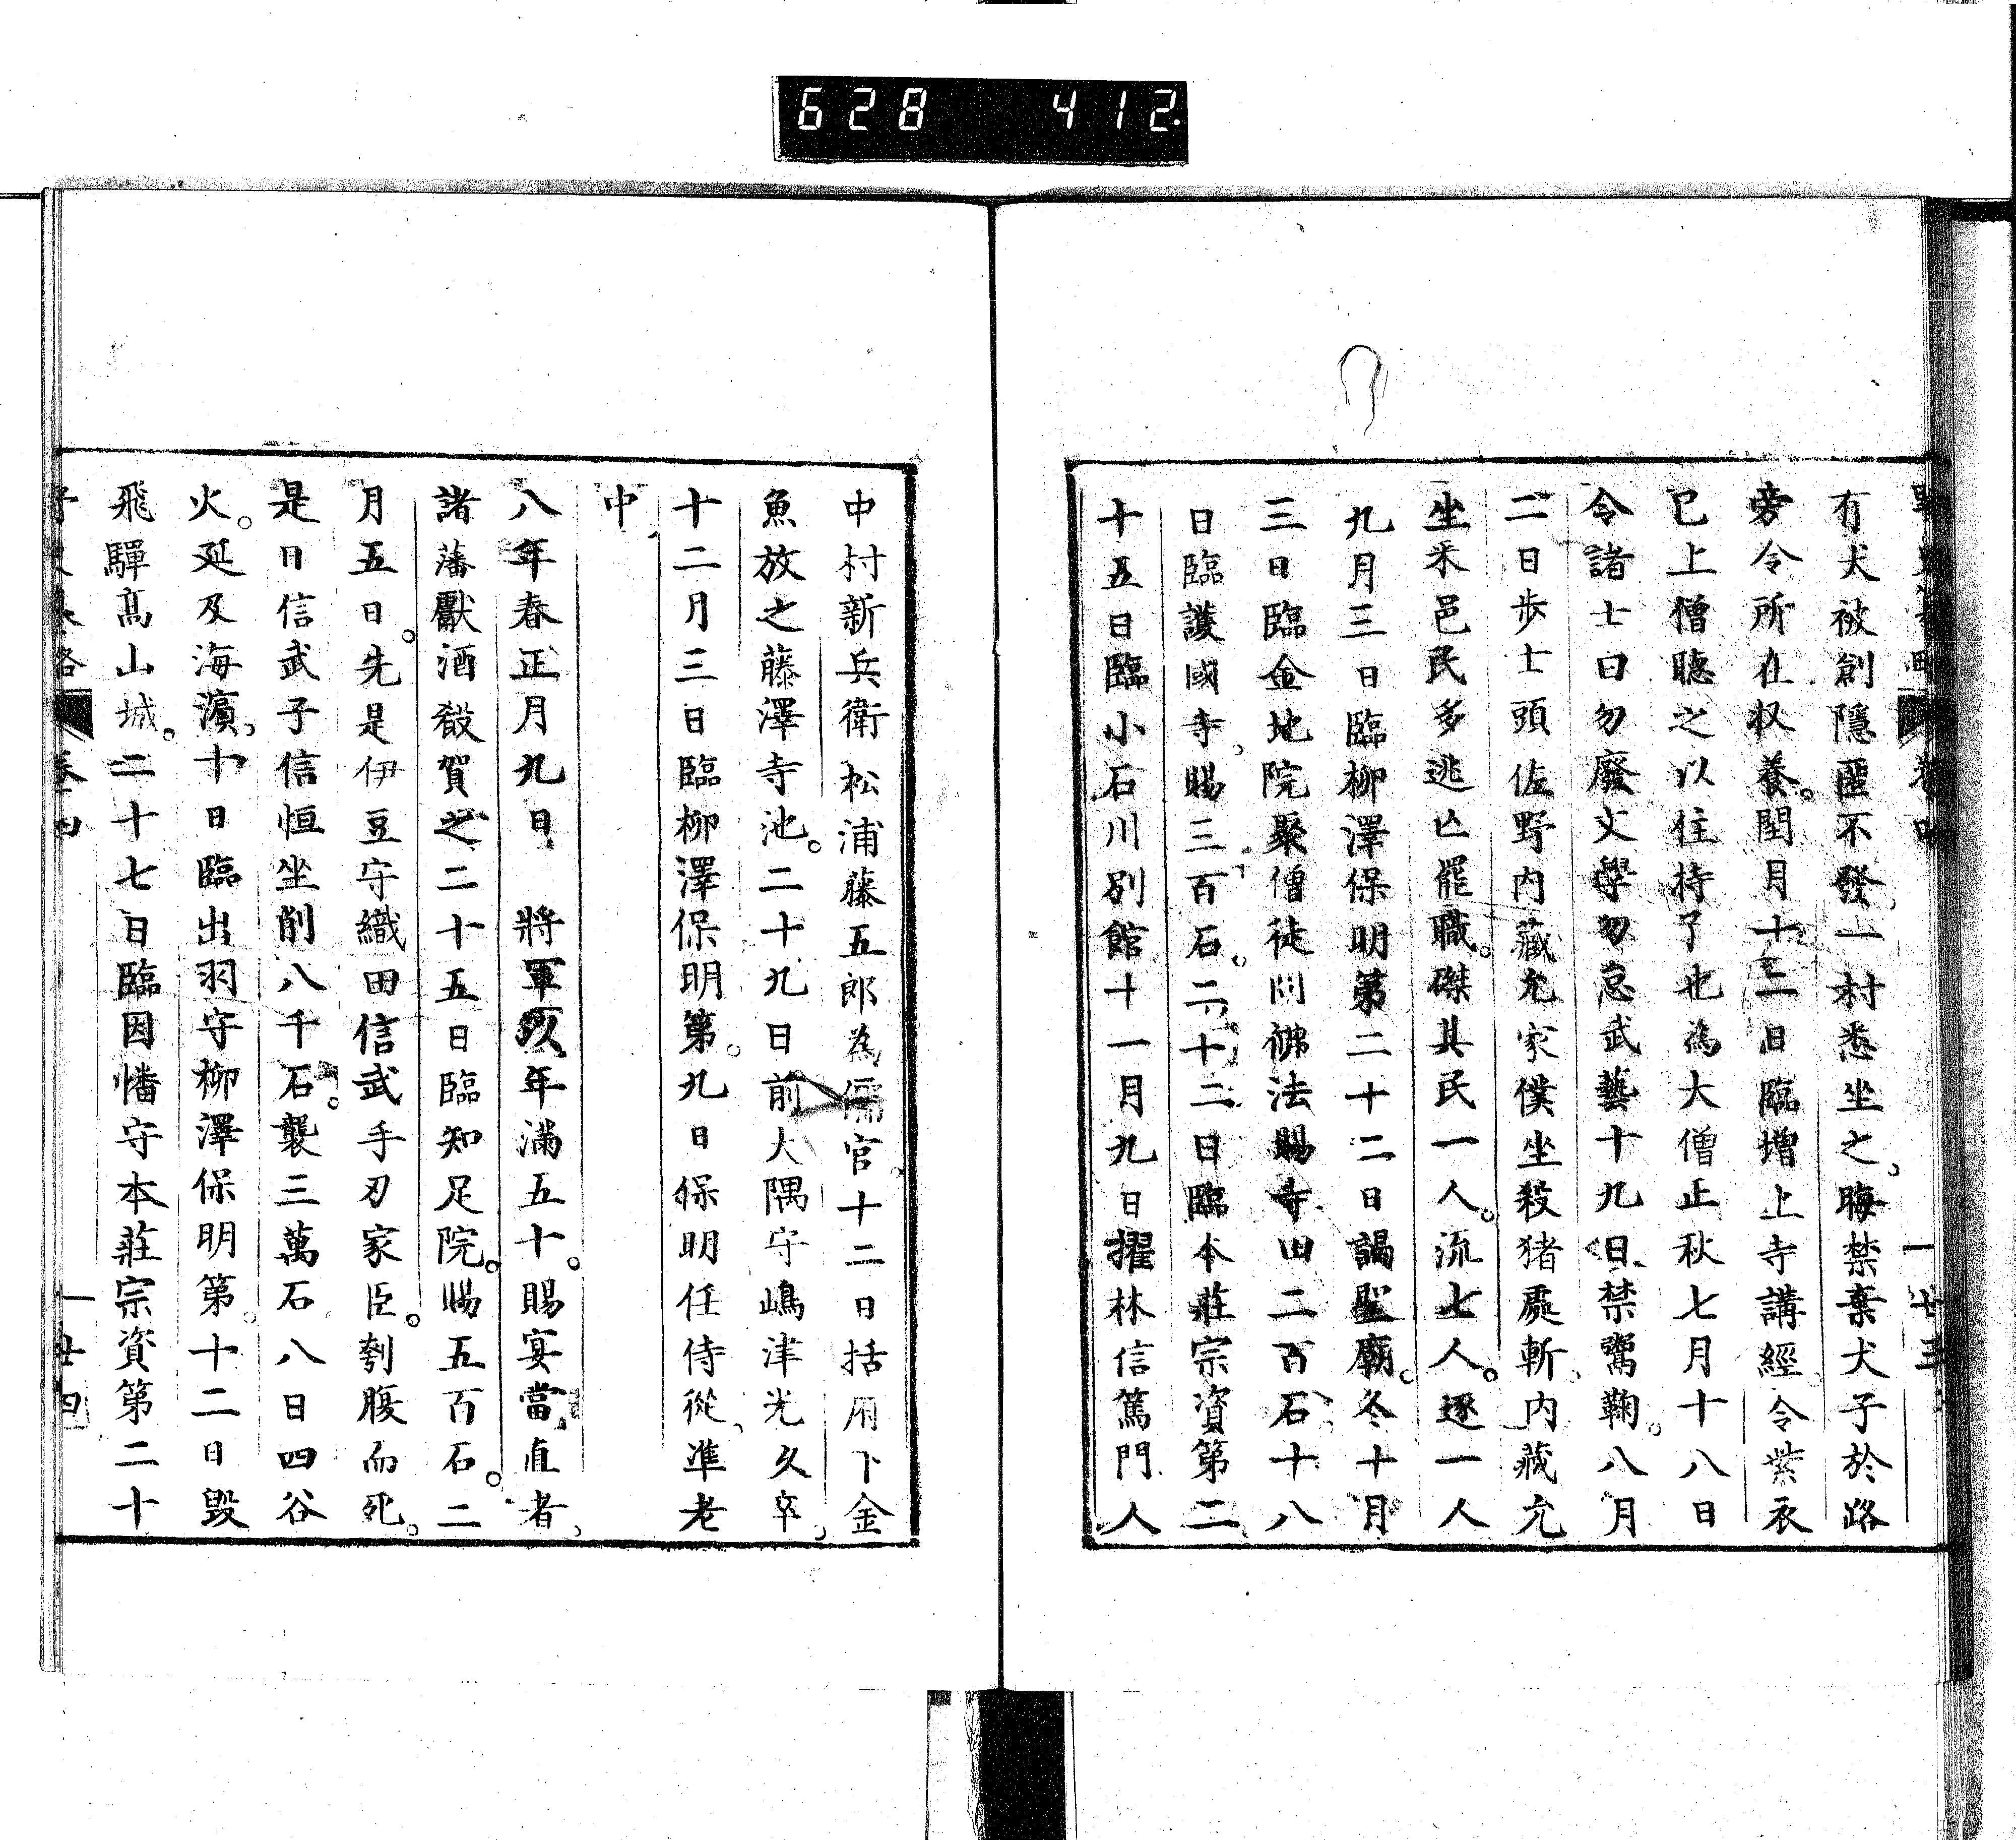 628 412
有犬被創隱匿不發一村悉坐之晦禁棄犬子於路
旁令所在収養閏月十二日臨増上寺講經令紫衣
已上僧聽之以住持了也為大僧正秋七月十八日
令諸士曰勿廢文學勿怠武藝十九日禁鬻鞠八月
二日歩士頭佐野内藏允家僕坐殺猪處斬内藏允
坐釆邑民多逃亾罷職磔其民一人流七人逐一人
九月三日臨柳澤保明第二十二日謁聖廟冬十月
三日臨金地院聚僧徒問佛法賜寺田二百石十八
日臨護國寺賜三百石二十二日臨本莊宗資第二
十五日臨小石川別館十一月九日擢林信篤門人
中村新兵衛松浦藤五郎為儒官十二日括府下金
魚放之藤澤寺池二十九日前大隅守嶋津光久卒
十二月三日臨柳澤保明第九日保明任侍從準老
中
八年春正月九日 將軍以年滿五十賜宴當直者
諸藩獻酒殽賀之二十五日臨知足院賜五百石二
月五日先是伊豆守織田信武手刃家臣刳腹而死
是日信武子信恒坐削八千石襲三萬石八日四谷
火延及海濵十日臨出羽守柳澤保明第十二日毀
飛騨髙山城二十七日臨因幡守本莊宗資第二十